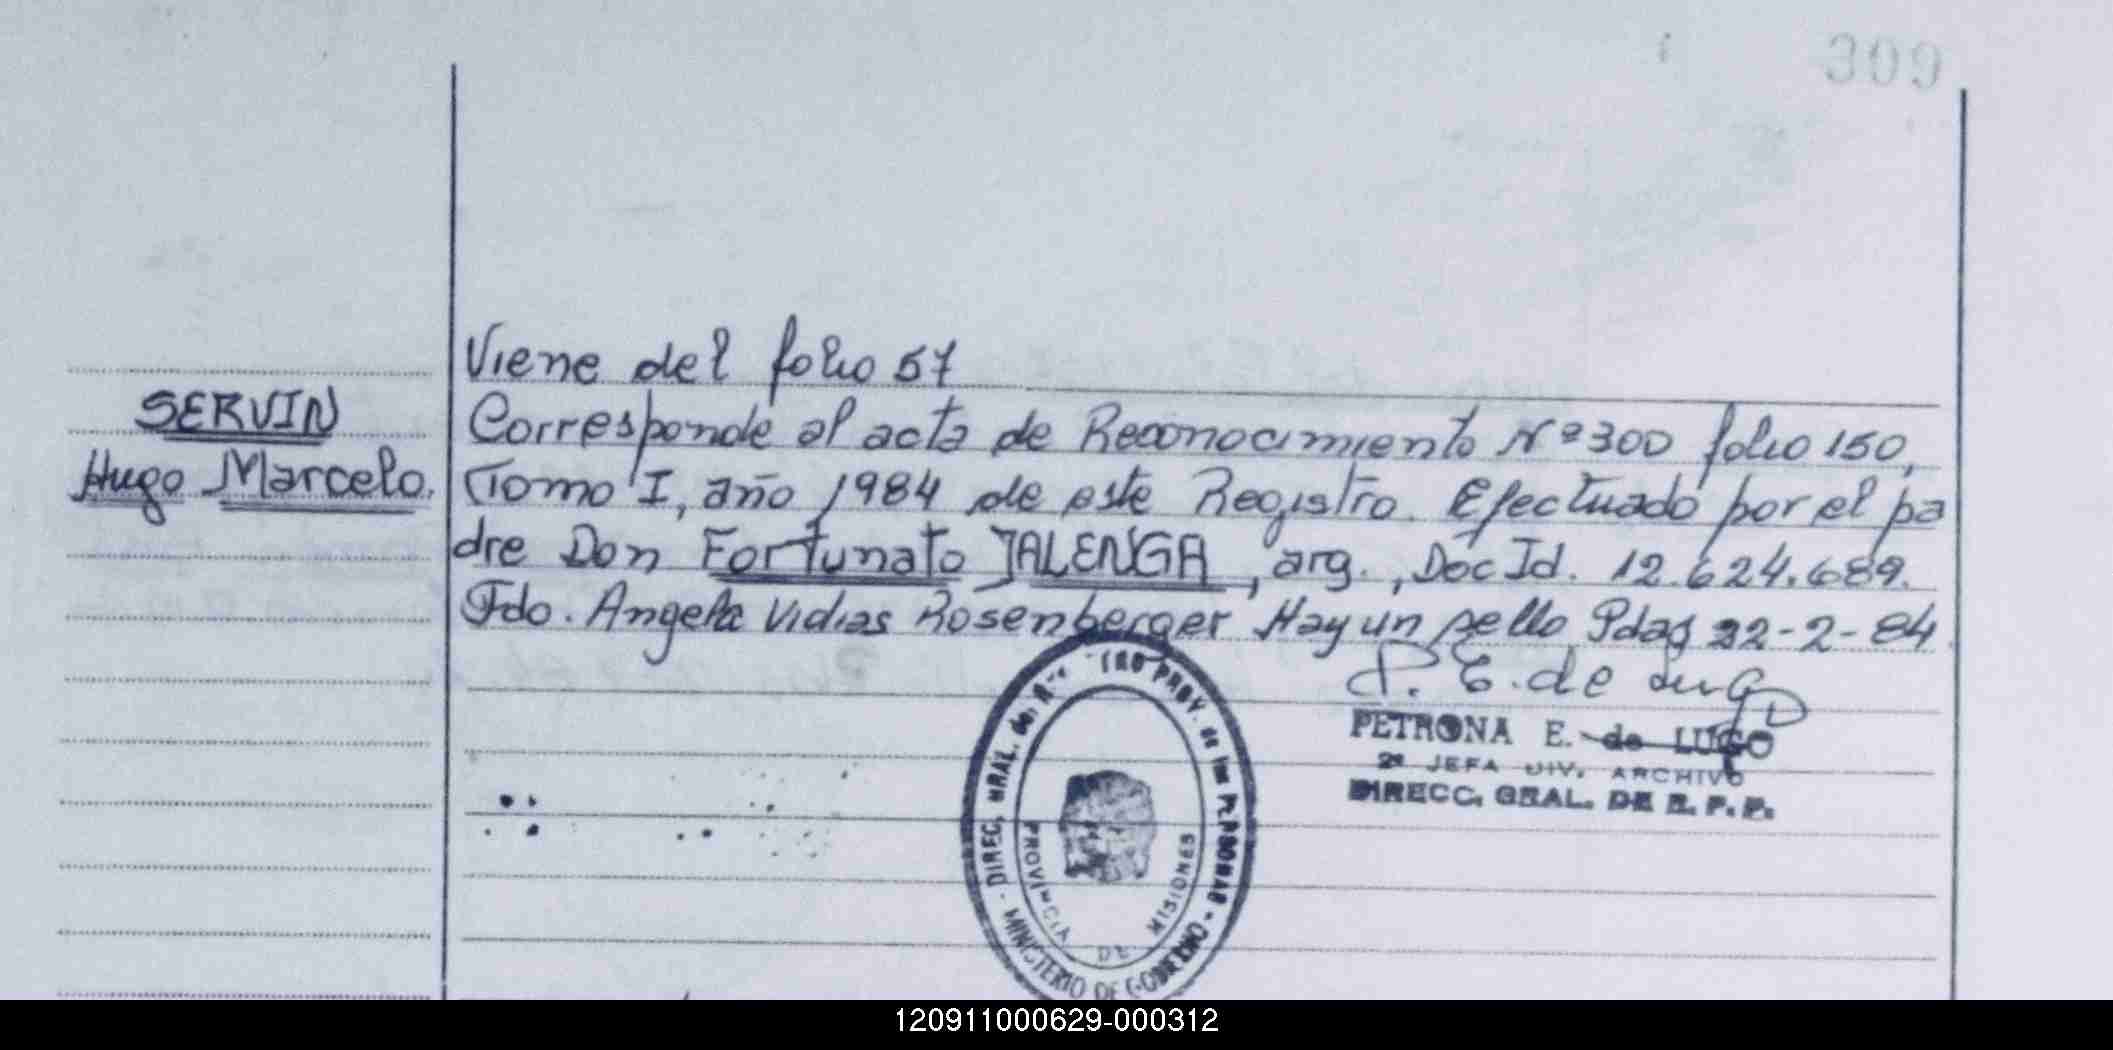 309
Viene del folio 57
SERVIN
Corresponde al acta de Reconocimiento Nº 300 folio 150,
Hugo Marcelo.
Tomo I, año 1984 de este Registro. Efectuado por el pa
dre Don Fortunato JALENGA, arg., Doc Id. 12.624.689.
Fdo. Angela Vidias Rosenberger Hay un sello Pdas 22-2-84
P. E. de Lugo
PETRONA E. de LUGO
2ª JEFA DIV. ARCHIVO
DIRECC. GRAL. DE R. P. P.
DIREC. GRAL. del PROV. de las PERSONAS
PROVINCIA DE MISIONES
MINISTERIO DE GOBIERNO
120911000629-000312